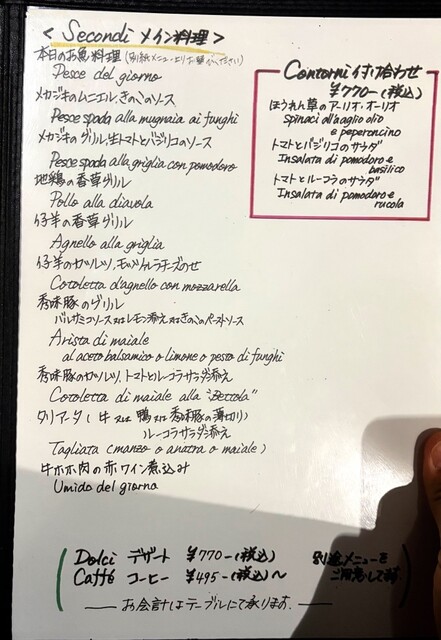 < Secondi メイン料理 >
本日のお魚料理 (別紙メニューよりお選びください)
Pesce del giorno
メカジキのムニエル、きのこのソース
Pesce spada alla mugnaia ai funghi
メカジキのグリル、生トマトとバジリコのソース
Pesce spada alla griglia con pomodoro
地鶏の香草グリル
Pollo alla diavola
仔羊の香草グリル
Agnello alla griglia
仔羊のカツレツ、モッツァレラチーズのせ
Cotoletta d'agnello con mozzarella
秀味豚のグリル
バルサミコソース又はレモン添え又はきのこのペーストソース
Arista di maiale
al aceto balsamico o limone o pesto di funghi
秀味豚のカツレツ、トマトとルーコラサラダ添え
Cotoletta di maiale alla "Bettola"
タリアータ ( 牛 又は 鴨 又は 秀味豚の薄切り)
ルーコラサラダ添え
Tagliata (manzo o anatra o maiale)
牛ホホ肉の赤ワイン煮込み
Umido del giorno
Contorni 付け合わせ
¥770-(税込)
ほうれん草のアーリオ・オーリオ
Spinaci all'aglio olio
e peperoncino
トマトとバジリコのサラダ
Insalata di pomodoro e
basilico
トマトとルーコラのサラダ
Insalata di pomodoro e
rucola
Dolci デザート ¥770-(税込) 別途メニューを
Caffé コーヒー ¥495-(税込)~ ご用意して
お会計はテーブルにて承ります.